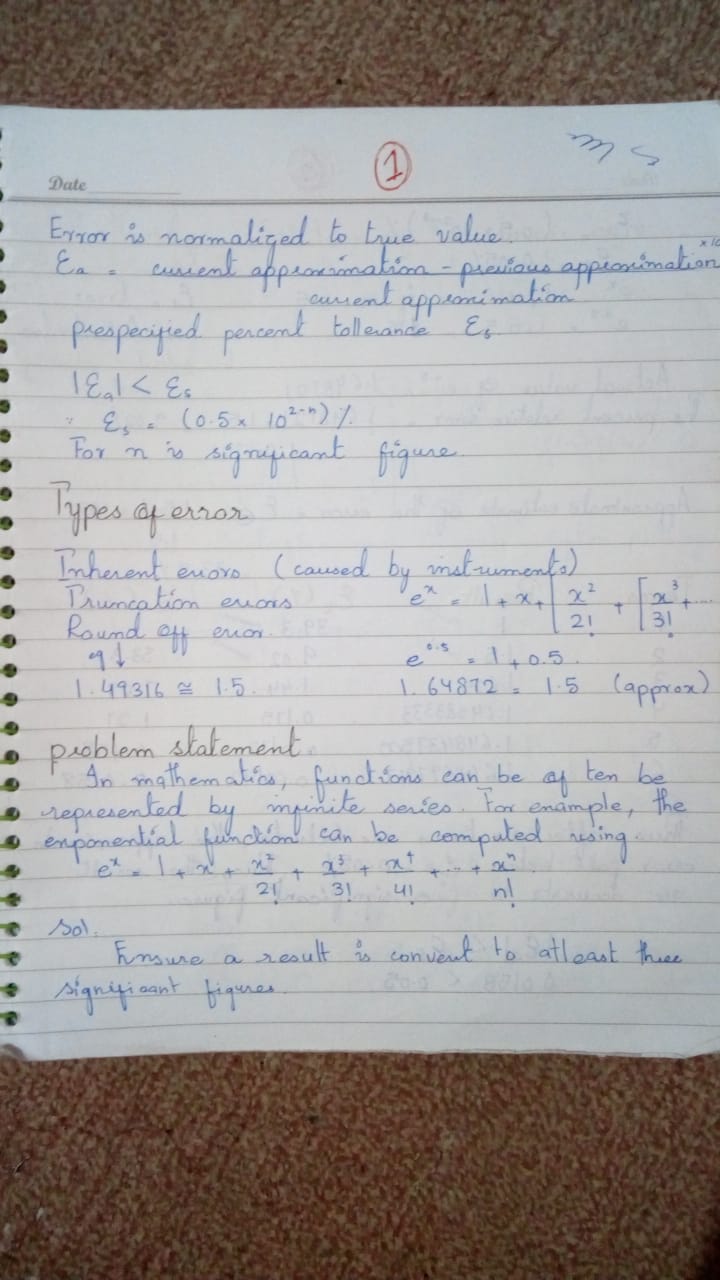 1
Date
Error is normalized to true value.
Ea = current approximation - previous approximation × 10
current approximation
prespecified percent tollerance Es
|Ea| < Es
∵ Es = (0.5 × 10^(2-n)) %
For n is significant figure.
Types of error
Inherent errors (caused by instruments)
Truncation errors e^x = 1 + x + x²/2! + x³/3! + ....
Round off error.
e^0.5 = 1 + 0.5.
1.49316 ≅ 1.5. 1.64872 = 1.5 (approx)
problem statement.
In mathematics, functions can be of ten be
represented by infinite series. For example, the
exponential function can be computed using.
e^x = 1 + x + x²/2! + x³/3! + x⁴/4! + ... + xⁿ/n!.
Sol.
Ensure a result is convent to atleast three
significant figures.